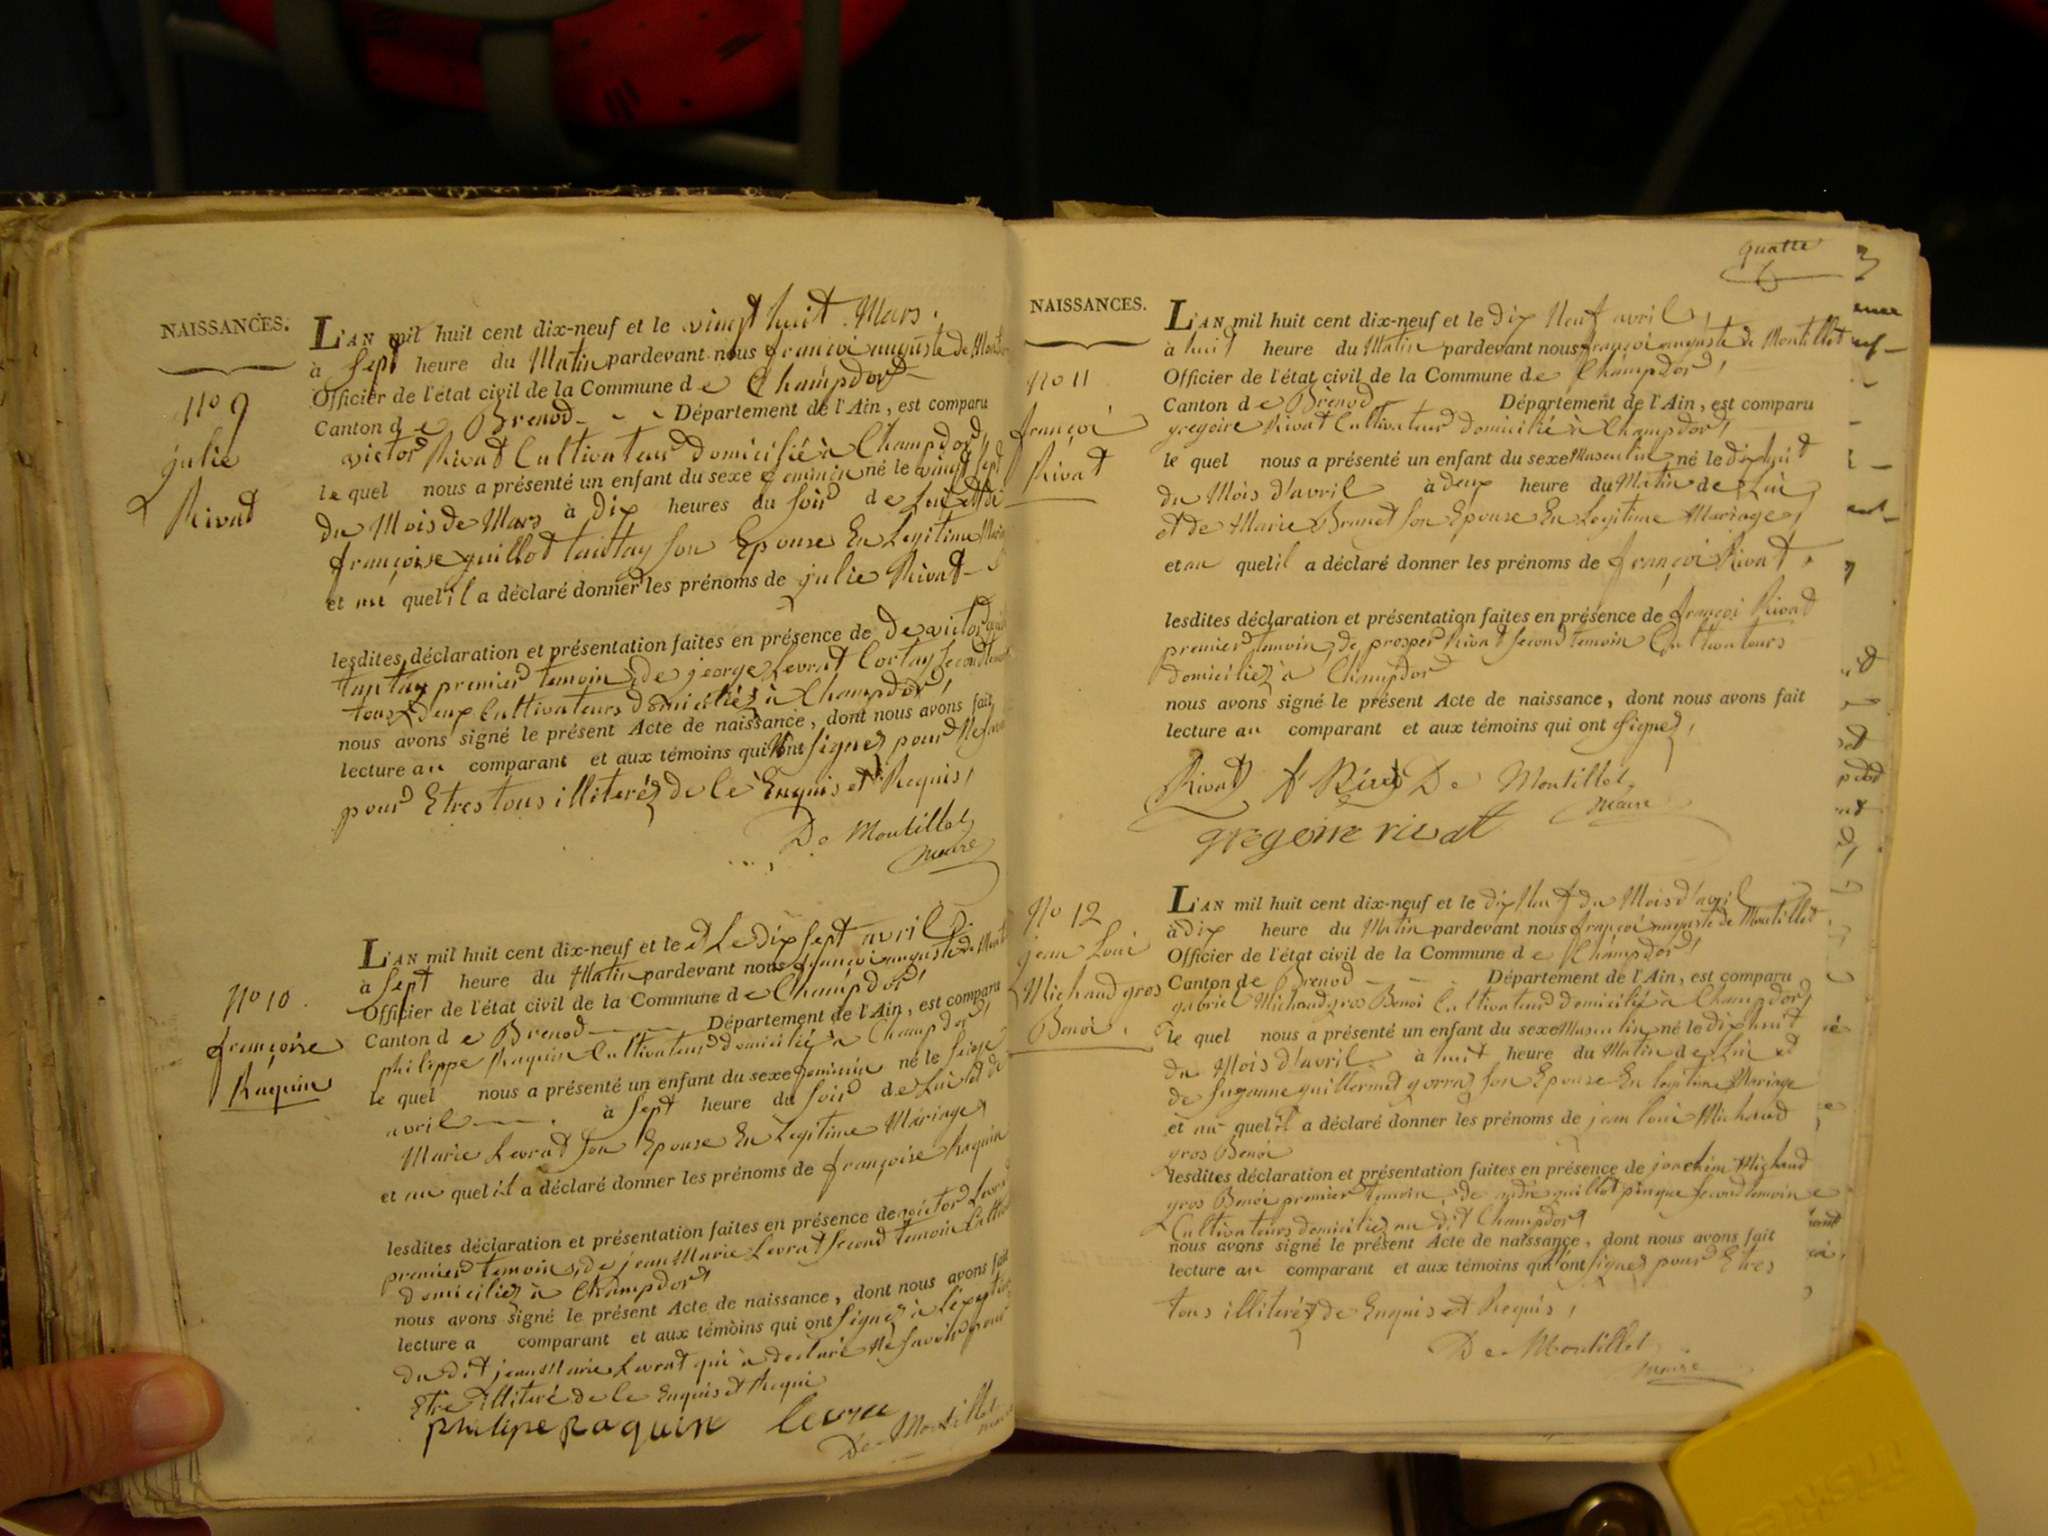 NAISSANCES.
No 9
julie
Rivat
L'AN mil huit cent dix-neuf et le vingt huit Mars.
à sept heure du Matin pardevant nous françoi auguste de
Officier de l'état civil de la Commune de Champdor
Canton de Brenod Département de l'Ain, est comparu
victor Rivat Cultivateur domicilié à Champdor
le quel nous a présenté un enfant du sexe feminin né le vingt sept
du Mois de Mars à dix heures du soir de Lui et de
françoise guillot tantay son Epouse En Legitime
et au quel il a déclaré donner les prénoms de julie Rivat
lesdites déclaration et présentation faites en présence de De victor
tantay premier temoin, de jeorge Levrat Cortay second
tous deux Cultivateurs domiciliéz à Champdor,
nous avons signé le présent Acte de naissance, dont nous avons fait
lecture au comparant et aux témoins qui ont signez pour Ne
pour Etres tous illiteréz de Ce Enquis et Requis,
De Montillet
maire
No 10
françoise
Raquin
L'AN mil huit cent dix-neuf et le et Le dix sept avril
à sept heure du Matin pardevant nous françoi auguste de
Officier de l'état civil de la Commune de Champdor,
Canton de Brenod Département de l'Ain, est comparu
philippe Raquin Cultivateur domicilié à Champdor,
le quel nous a présenté un enfant du sexe feminin né le seize
avril à sept heure du soir de Lui et de
Marie Levrat son Epouse En Legitime Mariage
et au quel il a déclaré donner les prénoms de françoise Raquin
lesdites déclaration et présentation faites en présence de victor
premier temoin, de jean Marie Levrat second temoin
domiciliez à Champdor,
nous avons signé le présent Acte de naissance, dont nous avons fait
lecture a comparant et aux témoins qui ont signez à
du dit jean Marie Levrat qui à declaré Ne savoir pour
Etre illiteré de Ce Enquis et Requi
philipe Raquin
De Montillet
quatre
NAISSANCES.
No 11
françoi
Rivat
L'AN mil huit cent dix-neuf et le dix Neuf avril,
à huit heure du Matin pardevant nous françoi auguste de Montillet
Officier de l'état civil de la Commune de Champdor,
Canton de Brenod Département de l'Ain, est comparu
gregoire Rivat Cultivateur domicilié à Champdor,
le quel nous a présenté un enfant du sexe Masculin né le dix huit
du Mois d'avril à deux heure du Matin de Lui,
et de Marie Brunet son Epouse En Legitime Mariage,
et au quel il a déclaré donner les prénoms de françoi Rivat,
lesdites déclaration et présentation faites en présence de françoi Rivat
premier temoin, de prosper Rivat second temoin Cultivateurs
domiciliez à Champdor
nous avons signé le présent Acte de naissance, dont nous avons fait
lecture au comparant et aux témoins qui ont signez,
Rivat De Montillet
maire
gregoire rivat
No 12
jean Loui
Michaud gros
Benoi.
L'AN mil huit cent dix-neuf et le dix Neuf du Mois d'avril
à dix heure du Matin pardevant nous françoi auguste de Montillet
Officier de l'état civil de la Commune de Champdor,
Canton de Brenod Département de l'Ain, est comparu
gabriel Michaud gros Benoi Cultivateur domicilié à Champdor,
le quel nous a présenté un enfant du sexe Masculin né le dix huit
du Mois d'avril à heure du Matin de Lui et
de Suzanne guillermet gorraz son Epouse En legitime Mariage
et au quel il a déclaré donner les prénoms de jean Loui Michaud
gros Benoi
lesdites déclaration et présentation faites en présence de joachim Michaud
gros Benoi premier temoin, de guillot second temoin
Cultivateurs domiciliez au dit Champdor
nous avons signé le présent Acte de naissance, dont nous avons fait
lecture au comparant et aux témoins qui ont signez pour Etres
tous illiteréz de Enquis et Requis,
De Montillet
maire